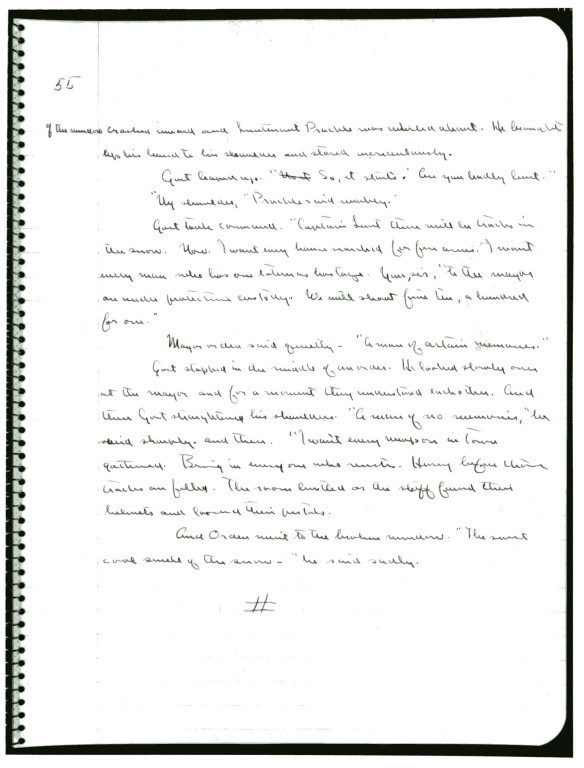 55
of the window crashed inward and Lieutenant Prackle was whirled about. He brought
up his hand to his shoulder and stared incredulously.
Gort leaped up. "So, it starts! Are you badly hurt."
"My shoulder," Prackle said numbly.
Gort took command. "Captain Loft there will be tracks in
the snow. Now. I want every house searched for fire arms. I want
every man who has one taken as hostage. You, sir," to the mayor
are under protective custody. We will shoot five, ten, a hundred
for one."
Mayor orden said quietly – "A man of certain memories."
Gort stopped in the middle of an order. He looked slowly over
at the mayor and for a moment they understood each other. And
then Gort straightened his shoulders. "A man of no memories," he
said sharply. and then. "I want every weapon in town
gathered. Bring in everyone who resists. Hurry before their
tracks are filled. The room bustled as the staff found their
helmets and loosened their pistols.
And Orden went to the broken window. "The sweet
cool smell of the snow – " he said sadly.
#